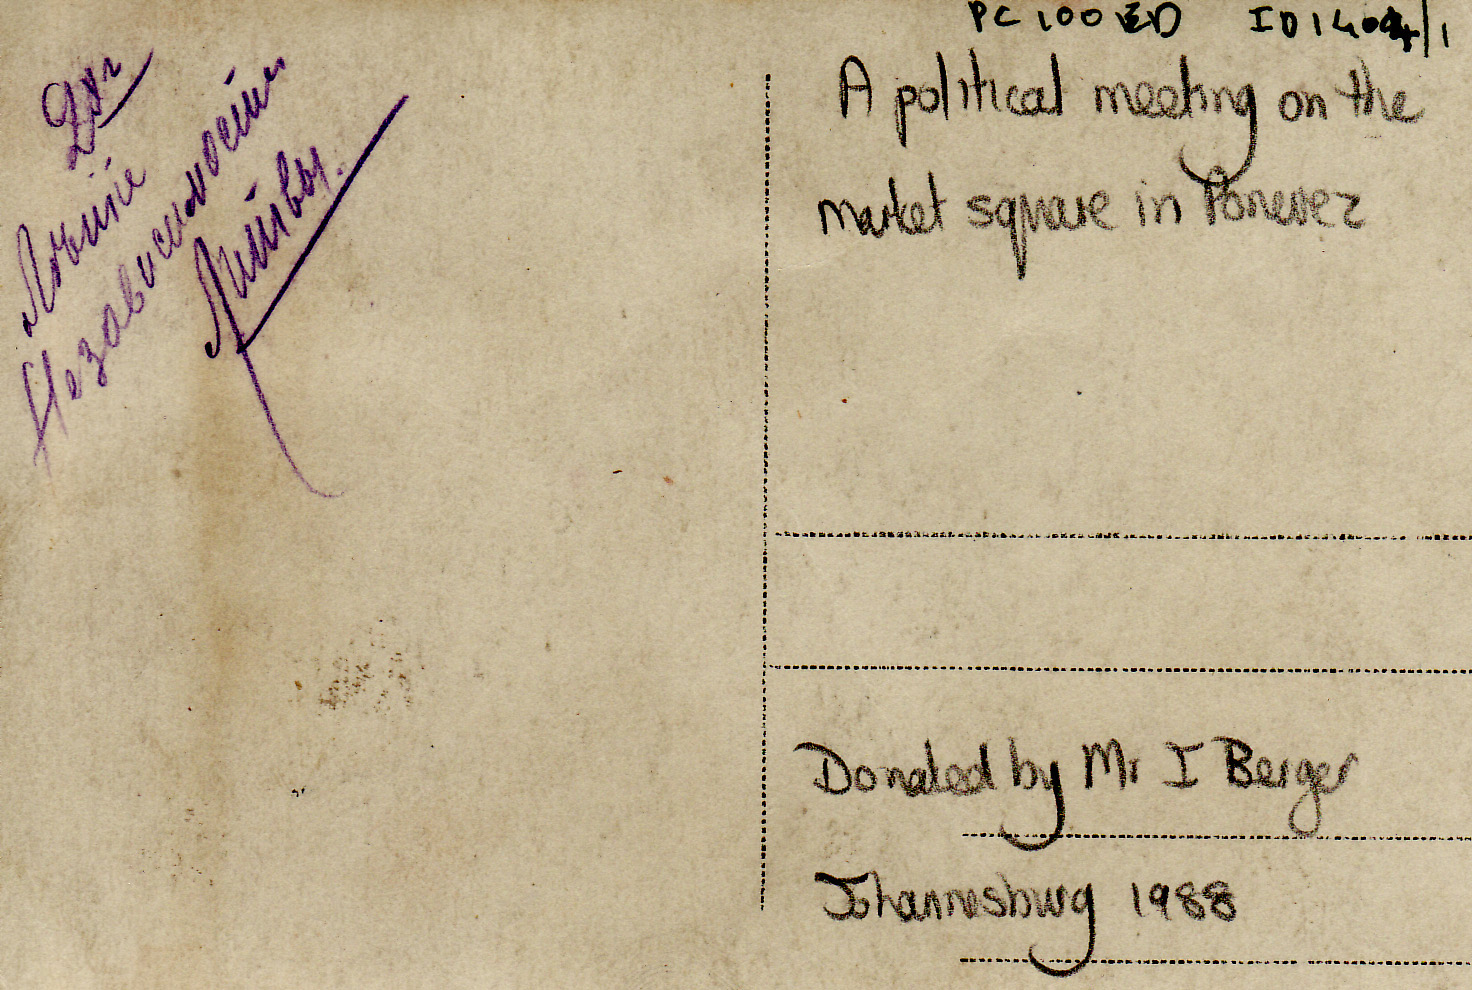 PC 100 ED ID 1404/1
A political meeting on the
market square in Ponevez
Независимости
Литвы.
Donated by Mr I Berger
Johannesburg 1988